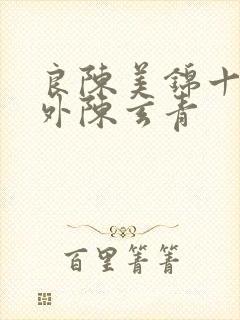 良陳美錦十
外陳玄青
百里菁菁